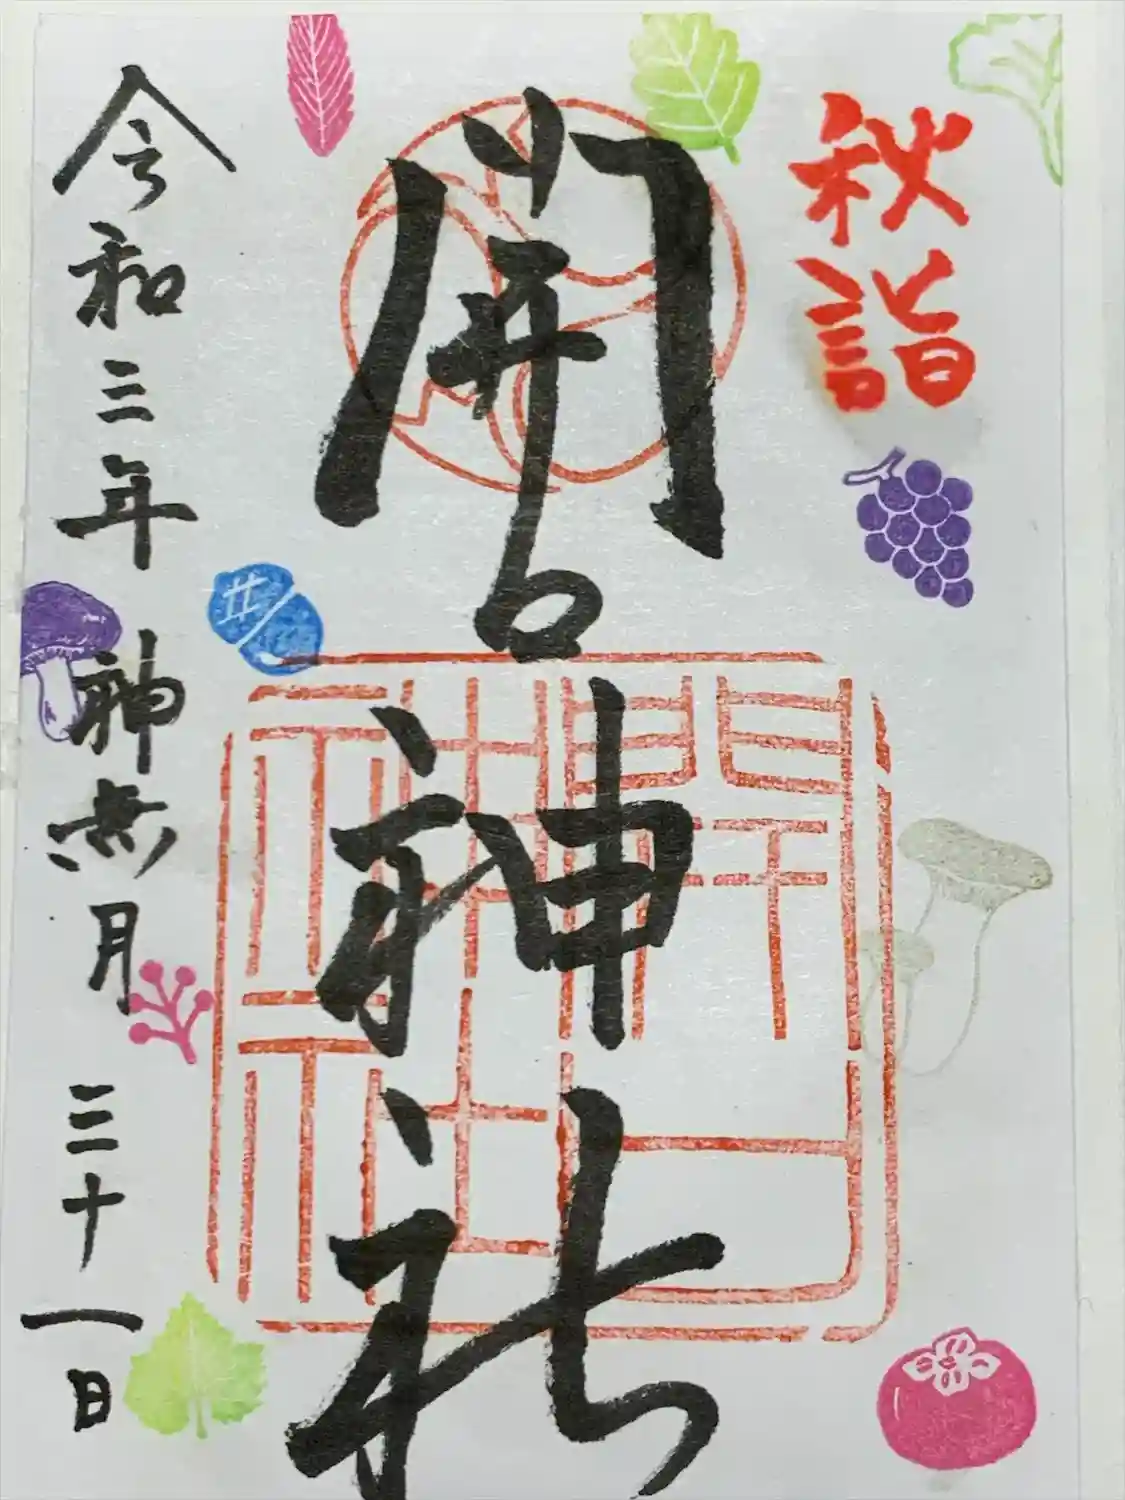 秋詣
開口神社
開口
神社
令和三年 神無月 三十一日